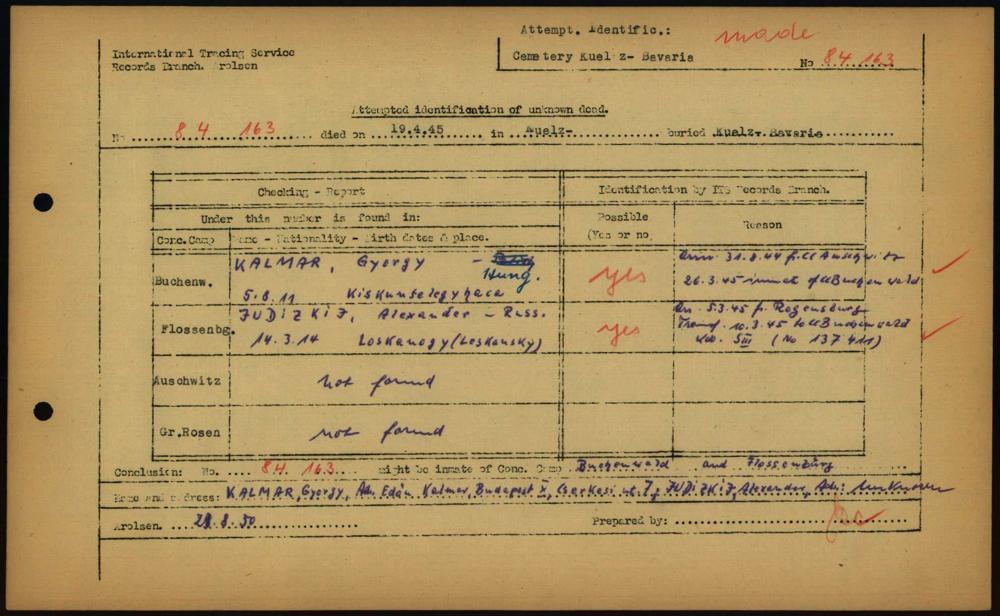 Attempt. Identific.: made
International Tracing Service
Records Branch. Arolsen
Cemetery Kuelz- Bavaria
No 84 163
Attempted identification of unknown dead.
No 84 163 died on 19.4.45 in Kuelz- buried Kuelz- Bavaria
Checking - Report
Identification by ITS Records Branch.
Under this number is found in:
Possible (Yes or no)
Reason
Conc.Camp
Name - Nationality - Birth dates & place.
Buchenw.
KALMAR, György - Hung.
5.8.11 Kiskunfelegyhaca
yes
31.8.44 f. cc Auschwitz
26.3.45 inmat of cc Buchenwald
Flossenbg.
JUDIZKIJ, Alexander - Russ.
14.3.14 Loskanogy (Loskansky)
yes
Arr. 5.3.45 f. Regensburg
Transf. 10.3.45 to cc Buchenwald
Kdo. SIII (No 137 411)
Auschwitz
not found
Gr.Rosen
not found
Conclusion: No. 84 163 might be inmate of Conc. Camp Buchenwald and Flossenbürg
Home and address: KALMAR, György, Adr. Edán Kalmar, Budapest X, Cserkesi ut. 7, JUDIZKIJ, Alexander, Adr: Unknown
Arolsen. 29.8.50
Prepared by: